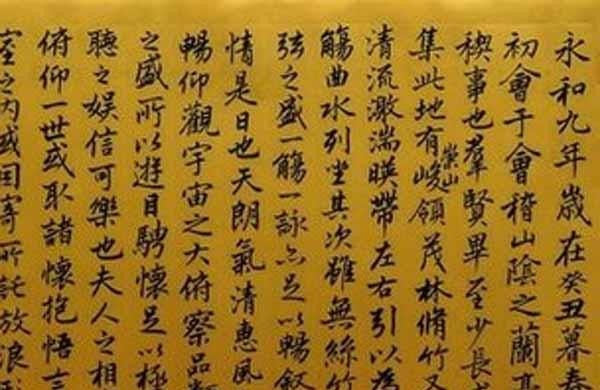 永和九年歲在癸丑暮春
初會于會稽山陰之蘭亭
稧事也羣賢畢至少長
集此地有崇山峻領茂林脩竹又
清流激湍暎帶左右引以為
觴曲水列坐其次雖無絲竹
弦之盛一觴一詠亦足以暢敘
情是日也天朗氣清惠風
暢仰觀宇宙之大俯察品類
之盛所以遊目騁懷足以極
聽之娛信可樂也夫人之相
俯仰一世或取諸懷抱悟言
室之內或因寄所託放浪